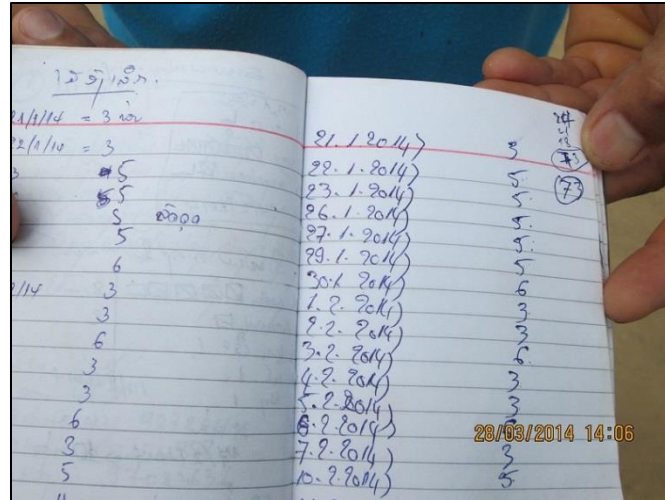 21/1/14 = 3
22/1/14 = 3
5
5
5
5
6
/14 3
3
6
3
3
6
3
5
21.1.2014) 3
22.1.2014) 5
23.1.2014) 5.
26.1.2014) 5.
27.1.2014) 5.
29.1.2014) 5
30.1.2014) 6
1.2.2014) 3
2.2.2014) 3
3.2.2014) 6.
4.2.2014) 3
5.2.2014) 3
6.2.2014)
7.2.2014) 3
10.2.2014) 5
73
73
28/03/2014 14:06